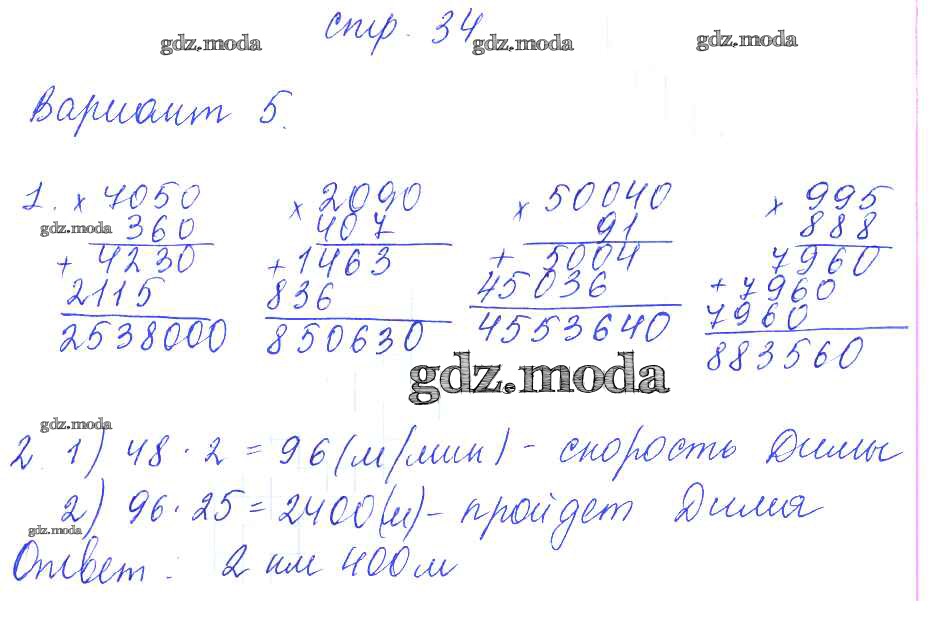 стр. 34
gdz.moda gdz.moda gdz.moda
Вариант 5.
1. × 7050 × 2090 × 50040 × 995
gdz.moda 360 407 91 888
+ 4230 + 1463 + 5004 7960
2115 836 45036 + 7960
2538000 850630 4553640 7960
883560
gdz.moda
gdz.moda
2. 1) 48 · 2 = 96 (м/мин) - скорость Димы
2) 96 · 25 = 2400 (м) - пройдет Дима
gdz.moda
Ответ: 2 км 400 м